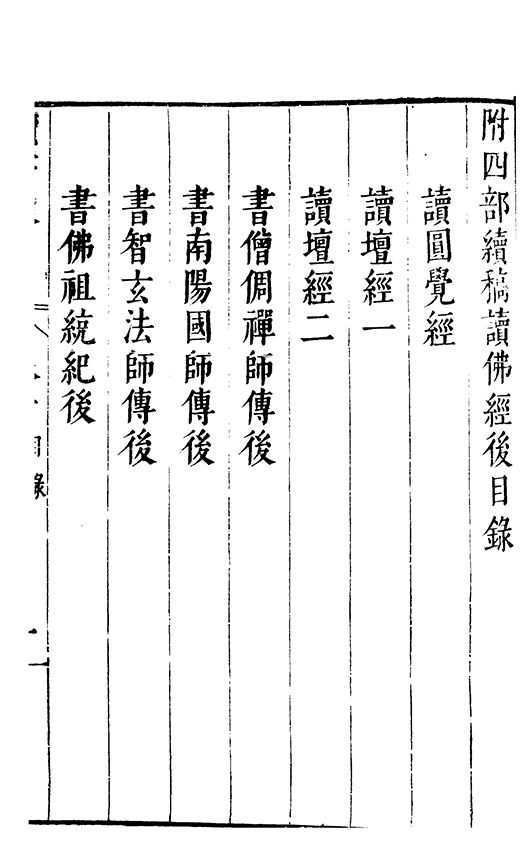 附四部續稿讀佛經後目錄
讀圓覺經
讀壇經一
讀壇經二
書僧倜禪師傳後
書南陽國師傳後
書智玄法師傳後
書佛祖統紀後
目錄